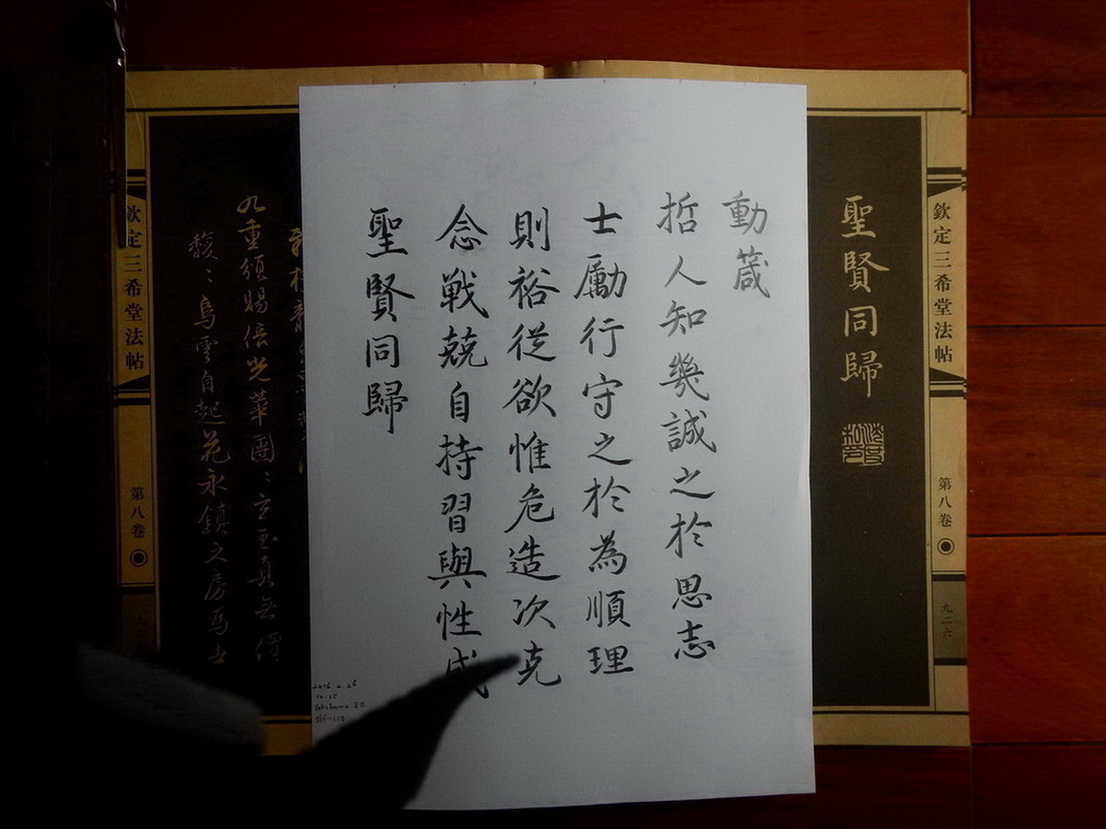 聖賢同歸
欽定三希堂法帖
第八卷
九二六
動箴
哲人知幾誠之於思志
士勵行守之於為順理
則裕從欲惟危造次克
念戰兢自持習與性成
聖賢同歸
九重頒賜倍光華團〻玄玉真無價
馥〻烏雲自起花永鎮文房為世
欽定三希堂法帖
第八卷